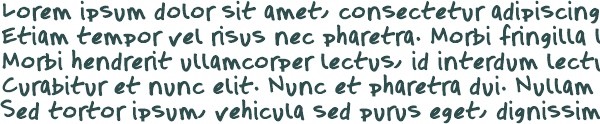 Lorem ipsum dolor sit amet, consectetur adipiscing
Etiam tempor vel risus nec pharetra. Morbi fringilla
Morbi hendrerit ullamcorper lectus, id interdum lectu
Curabitur et nunc elit. Nunc et pharetra dui. Nullam
Sed tortor ipsum, vehicula sed purus eget, dignissim